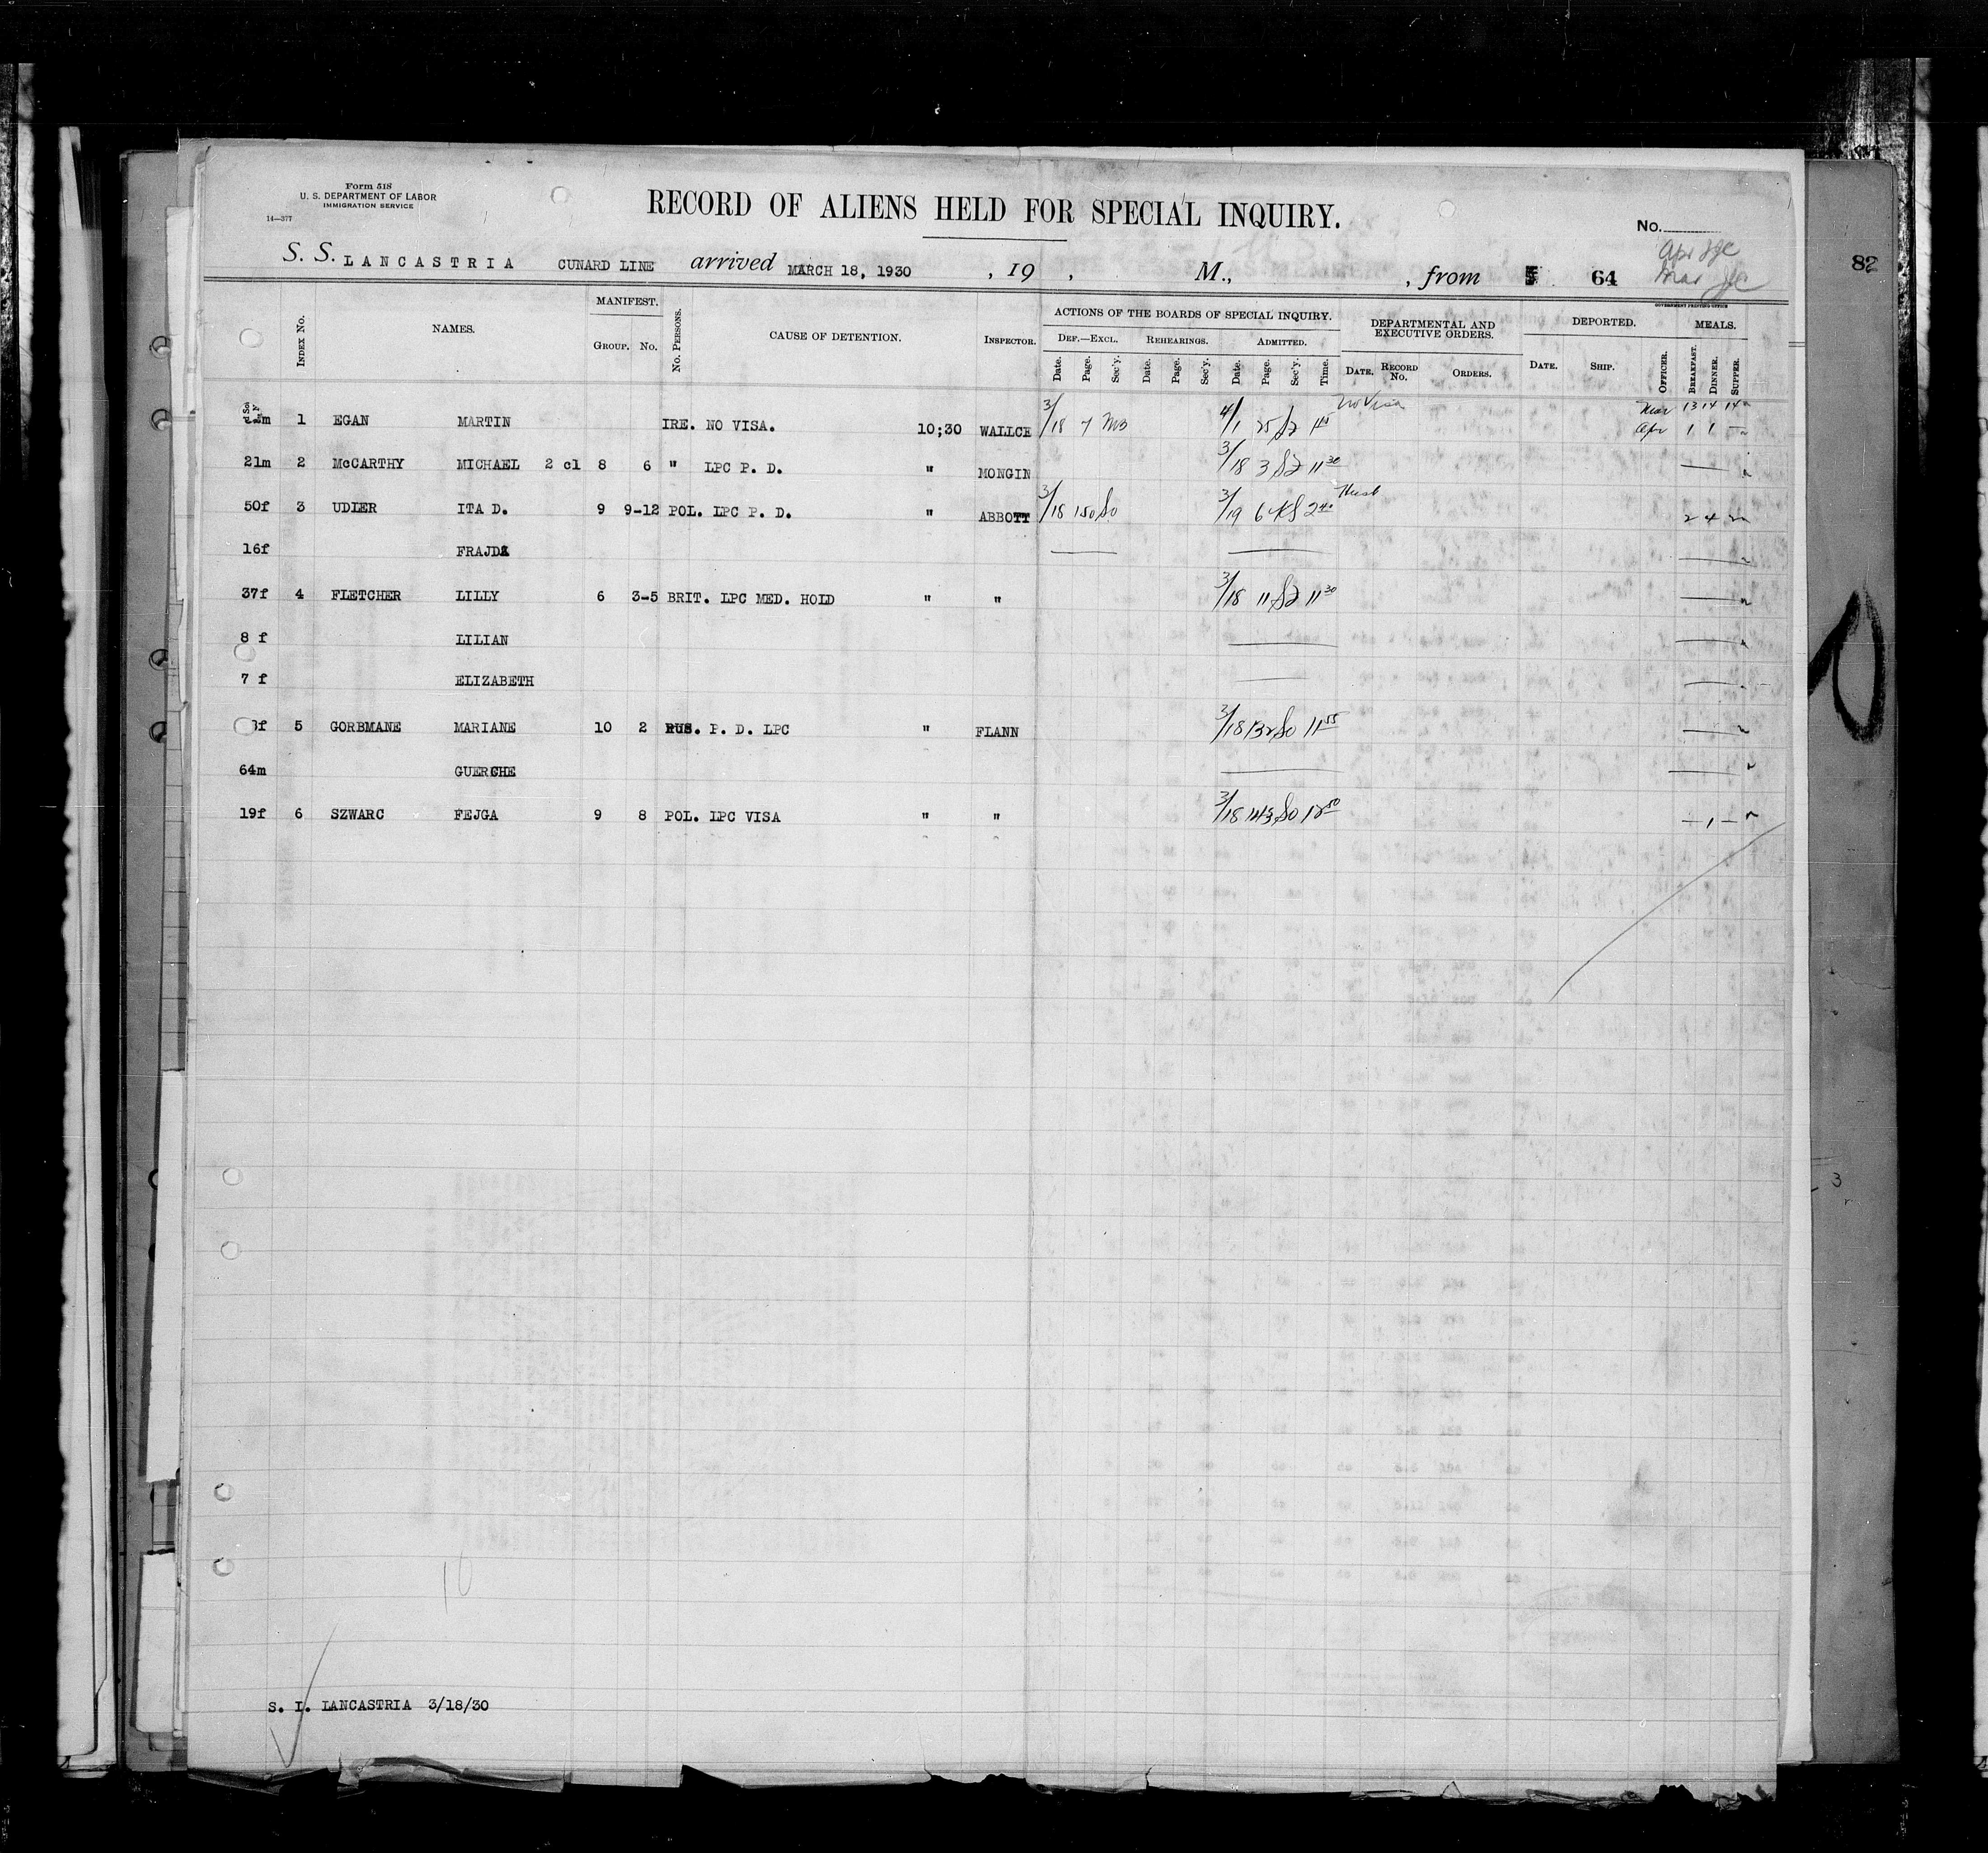 Form 518
U. S. DEPARTMENT OF LABOR
IMMIGRATION SERVICE
14—377
RECORD OF ALIENS HELD FOR SPECIAL INQUIRY.
No.
S. S. LANCASTRIA CUNARD LINE arrived MARCH 18, 1930 , 19 , M., , from 64
82
INDEX No. NAMES. MANIFEST. GROUP. No. No. PERSONS. CAUSE OF DETENTION. INSPECTOR. ACTIONS OF THE BOARDS OF SPECIAL INQUIRY. DEF.—EXCL. Date. Page. Sec'y. REHEARINGS. Date. Page. Sec'y. ADMITTED. Date. Page. Sec'y. Time. DEPARTMENTAL AND EXECUTIVE ORDERS. DATE. RECORD No. ORDERS. DEPORTED. DATE. SHIP. OFFICER. GOVERNMENT PRINTING OFFICE MEALS. BREAKFAST. DINNER. SUPPER.
m 1 EGAN MARTIN IRE. NO VISA. 10;30 WALLCE 3/18 7 4/1 25 No Visa Mar 13 14 14
Apr 1 1 —
21m 2 McCARTHY MICHAEL 2 cl 8 6 " LPC P. D. " MONGIN 3/18 3 11 30
50f 3 UDLER ITA D. 9 9-12 POL. LPC P. D. " ABBOTT 3/18 150 So 3/19 6 KS 2 40 Husb 2 4 2
16f FRAJDA
37f 4 FLETCHER LILLY 6 3-5 BRIT. LPC MED. HOLD " " 3/18 11 11 30
8 f LILIAN
7 f ELIZABETH
f 5 GORBMANE MARIANE 10 2 RUS. P. D. LPC " FLANN 3/18 132 So 11 55
64m GUERCHE
19f 6 SZWARC FEJGA 9 8 POL. LPC VISA " " 3/18 143 So — 1 —
3
10
S. I. LANCASTRIA 3/18/30